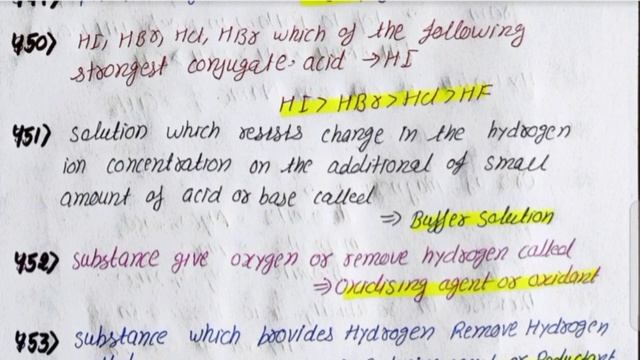 450) HI, HBr, Hcl, HBr which of the following
strongest conjugate acid → HI
HI > HBr > Hcl > HF
451) Solution which resists change in the hydrogen
ion concentration on the additional of small
amount of acid or base called
⇒ Buffer Solution
452) Substance give oxygen or remove hydrogen called
⇒ Oxidising agent or oxidant
453) Substance which provides Hydrogen Remove Hydrogen